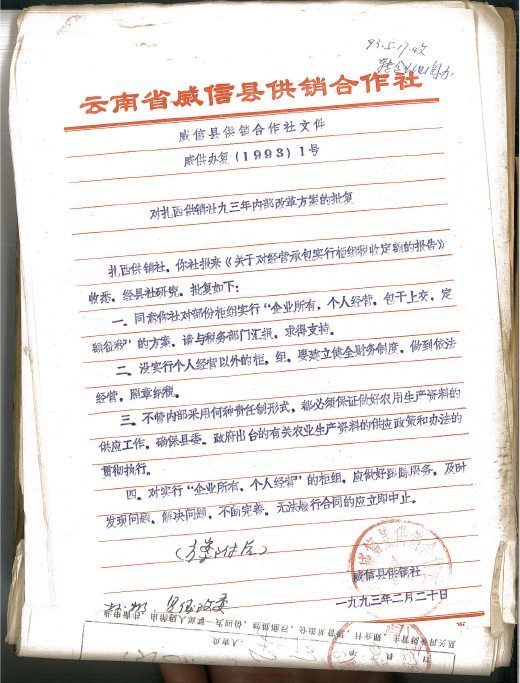 93.5.17.收
云南省威信县供销合作社
威信县供销合作社文件
威供办复(1993)1号
对扎西供销社九三年内部改革方案的批复
扎西供销社，你社报来《关于对经营承包实行柜组税收定额的报告》
收悉，经县社研究，批复如下：
一、同意你社对部份柜组实行“企业所有，个人经营，包干上交，定
额征税”的方案，请与税务部门汇报，求得支持。
二、没实行个人经营以外的柜，组，要建立健全财务制度，做到依法
经营，照章纳税。
三、不管内部采用何种责任制形式，都必须保证做好农用生产资料的
供应工作，确保县委、政府出台的有关农业生产资料的供应政策和办法的
贯彻执行。
四、对实行“企业所有，个人经营”的柜组，应做好跟踪服务，及时
发现问题，解决问题，不断完善，无法履行合同的应立即中止。
(方案附后)
威信县供销社
一九九三年二月二十日